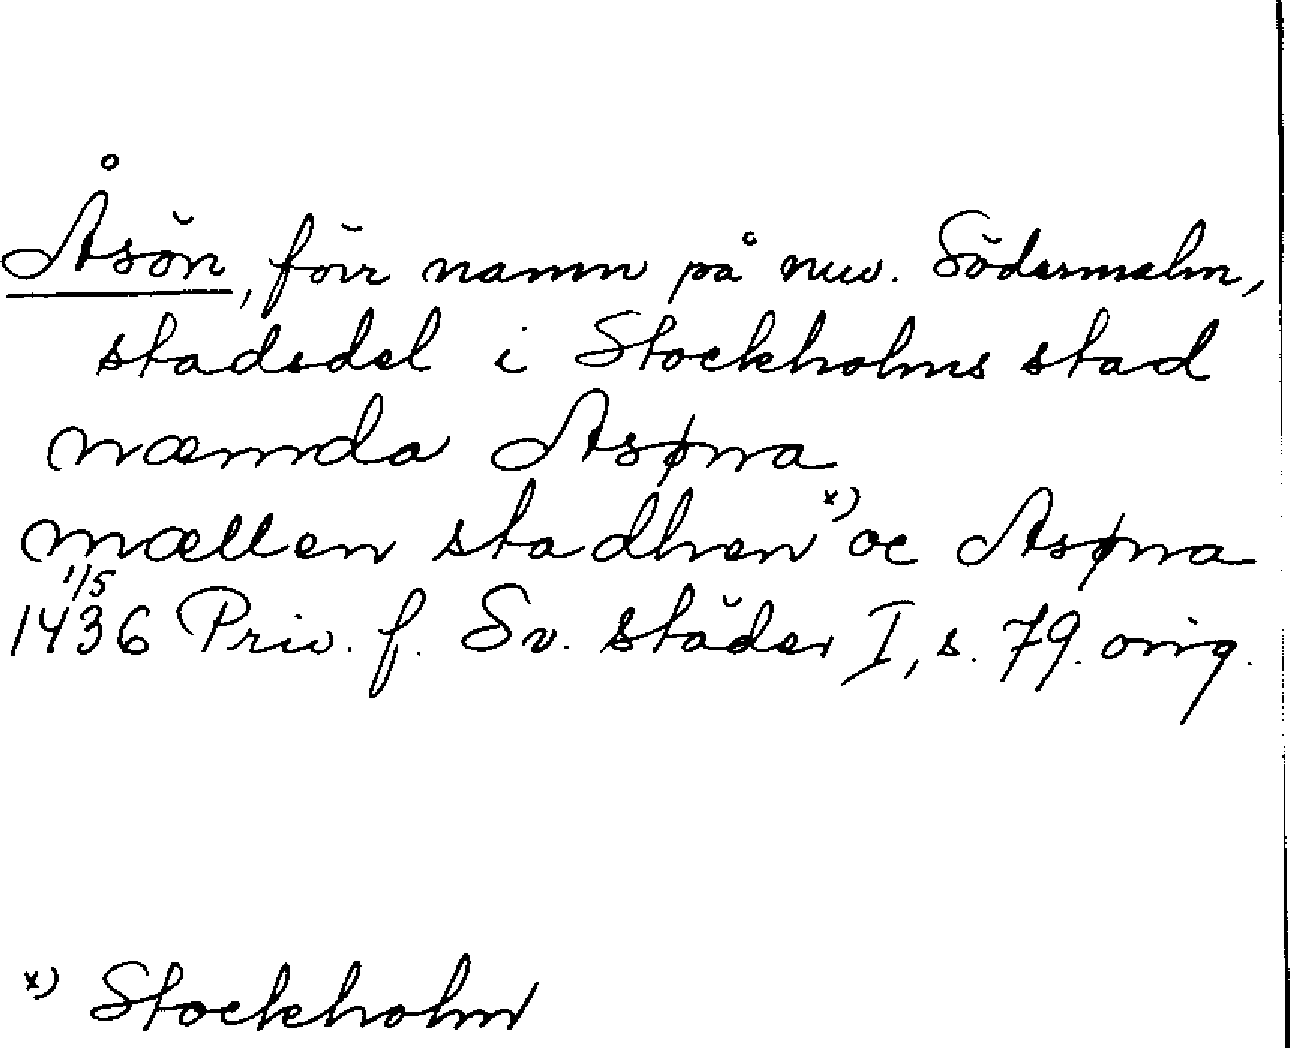 Åsön, förr namn på nuv. Södermalm,
stadsdel i Stockholms stad
næmda Asøna
mællen stadhen x) oc Asøna
1436 1/5 Priv. f. Sv. städer I, s. 79. orig.
x) Stockholm